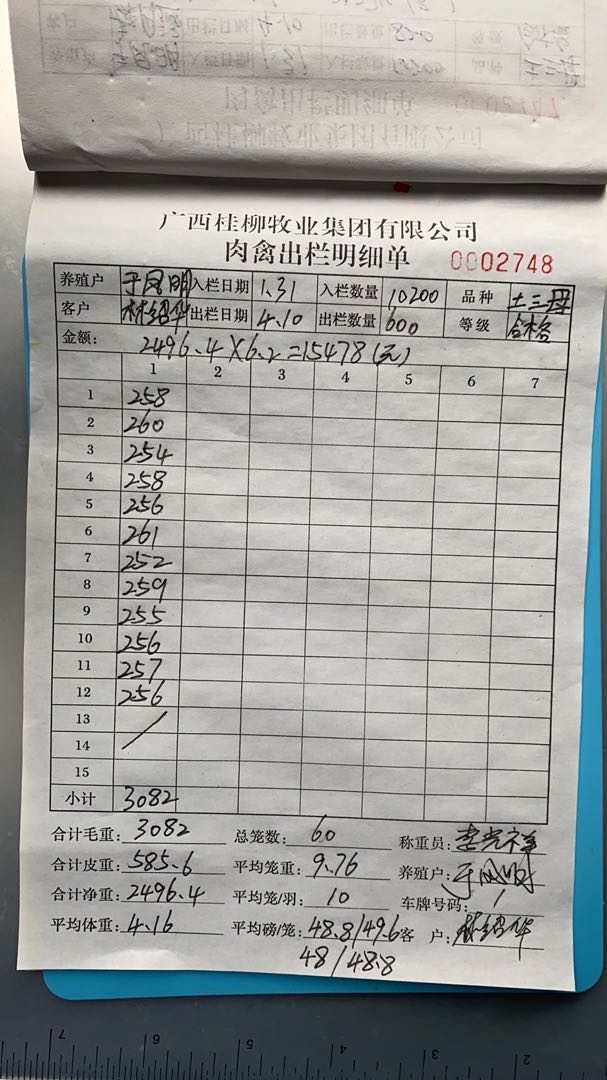 广西桂柳牧业集团有限公司
肉禽出栏明细单 0002748
养殖户 于凤明 入栏日期 1.31 入栏数量 10200 品种 土三母
客户 林绍华 出栏日期 4.10 出栏数量 600 等级 合格
金额: 2496.4×6.2=15478(元)
1 2 3 4 5 6 7
1 258
2 260
3 254
4 258
5 256
6 261
7 252
8 259
9 255
10 256
11 257
12 256
13 /
14
15
小计 3082
合计毛重: 3082 总笼数: 60 称重员:
合计皮重: 585.6 平均笼重: 9.76 养殖户: 于凤明
合计净重: 2496.4 平均笼/羽: 10 车牌号码: /
平均体重: 4.16 平均磅/笼: 48.8/49.6 客 户: 林绍华
48/48.8
7 6 5 4 3 2